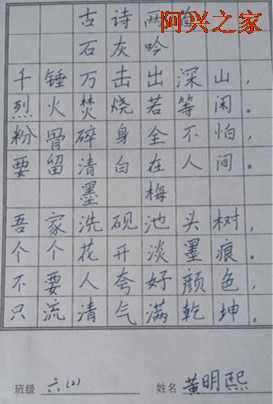 阿兴之家
古诗两首
石灰吟
千锤万击出深山，
烈火焚烧若等闲。
粉骨碎身全不怕，
要留清白在人间。
墨梅
吾家洗砚池头树，
个个花开淡墨痕。
不要人夸好颜色，
只流清气满乾坤。
班级 六(2) 姓名 黄明熙